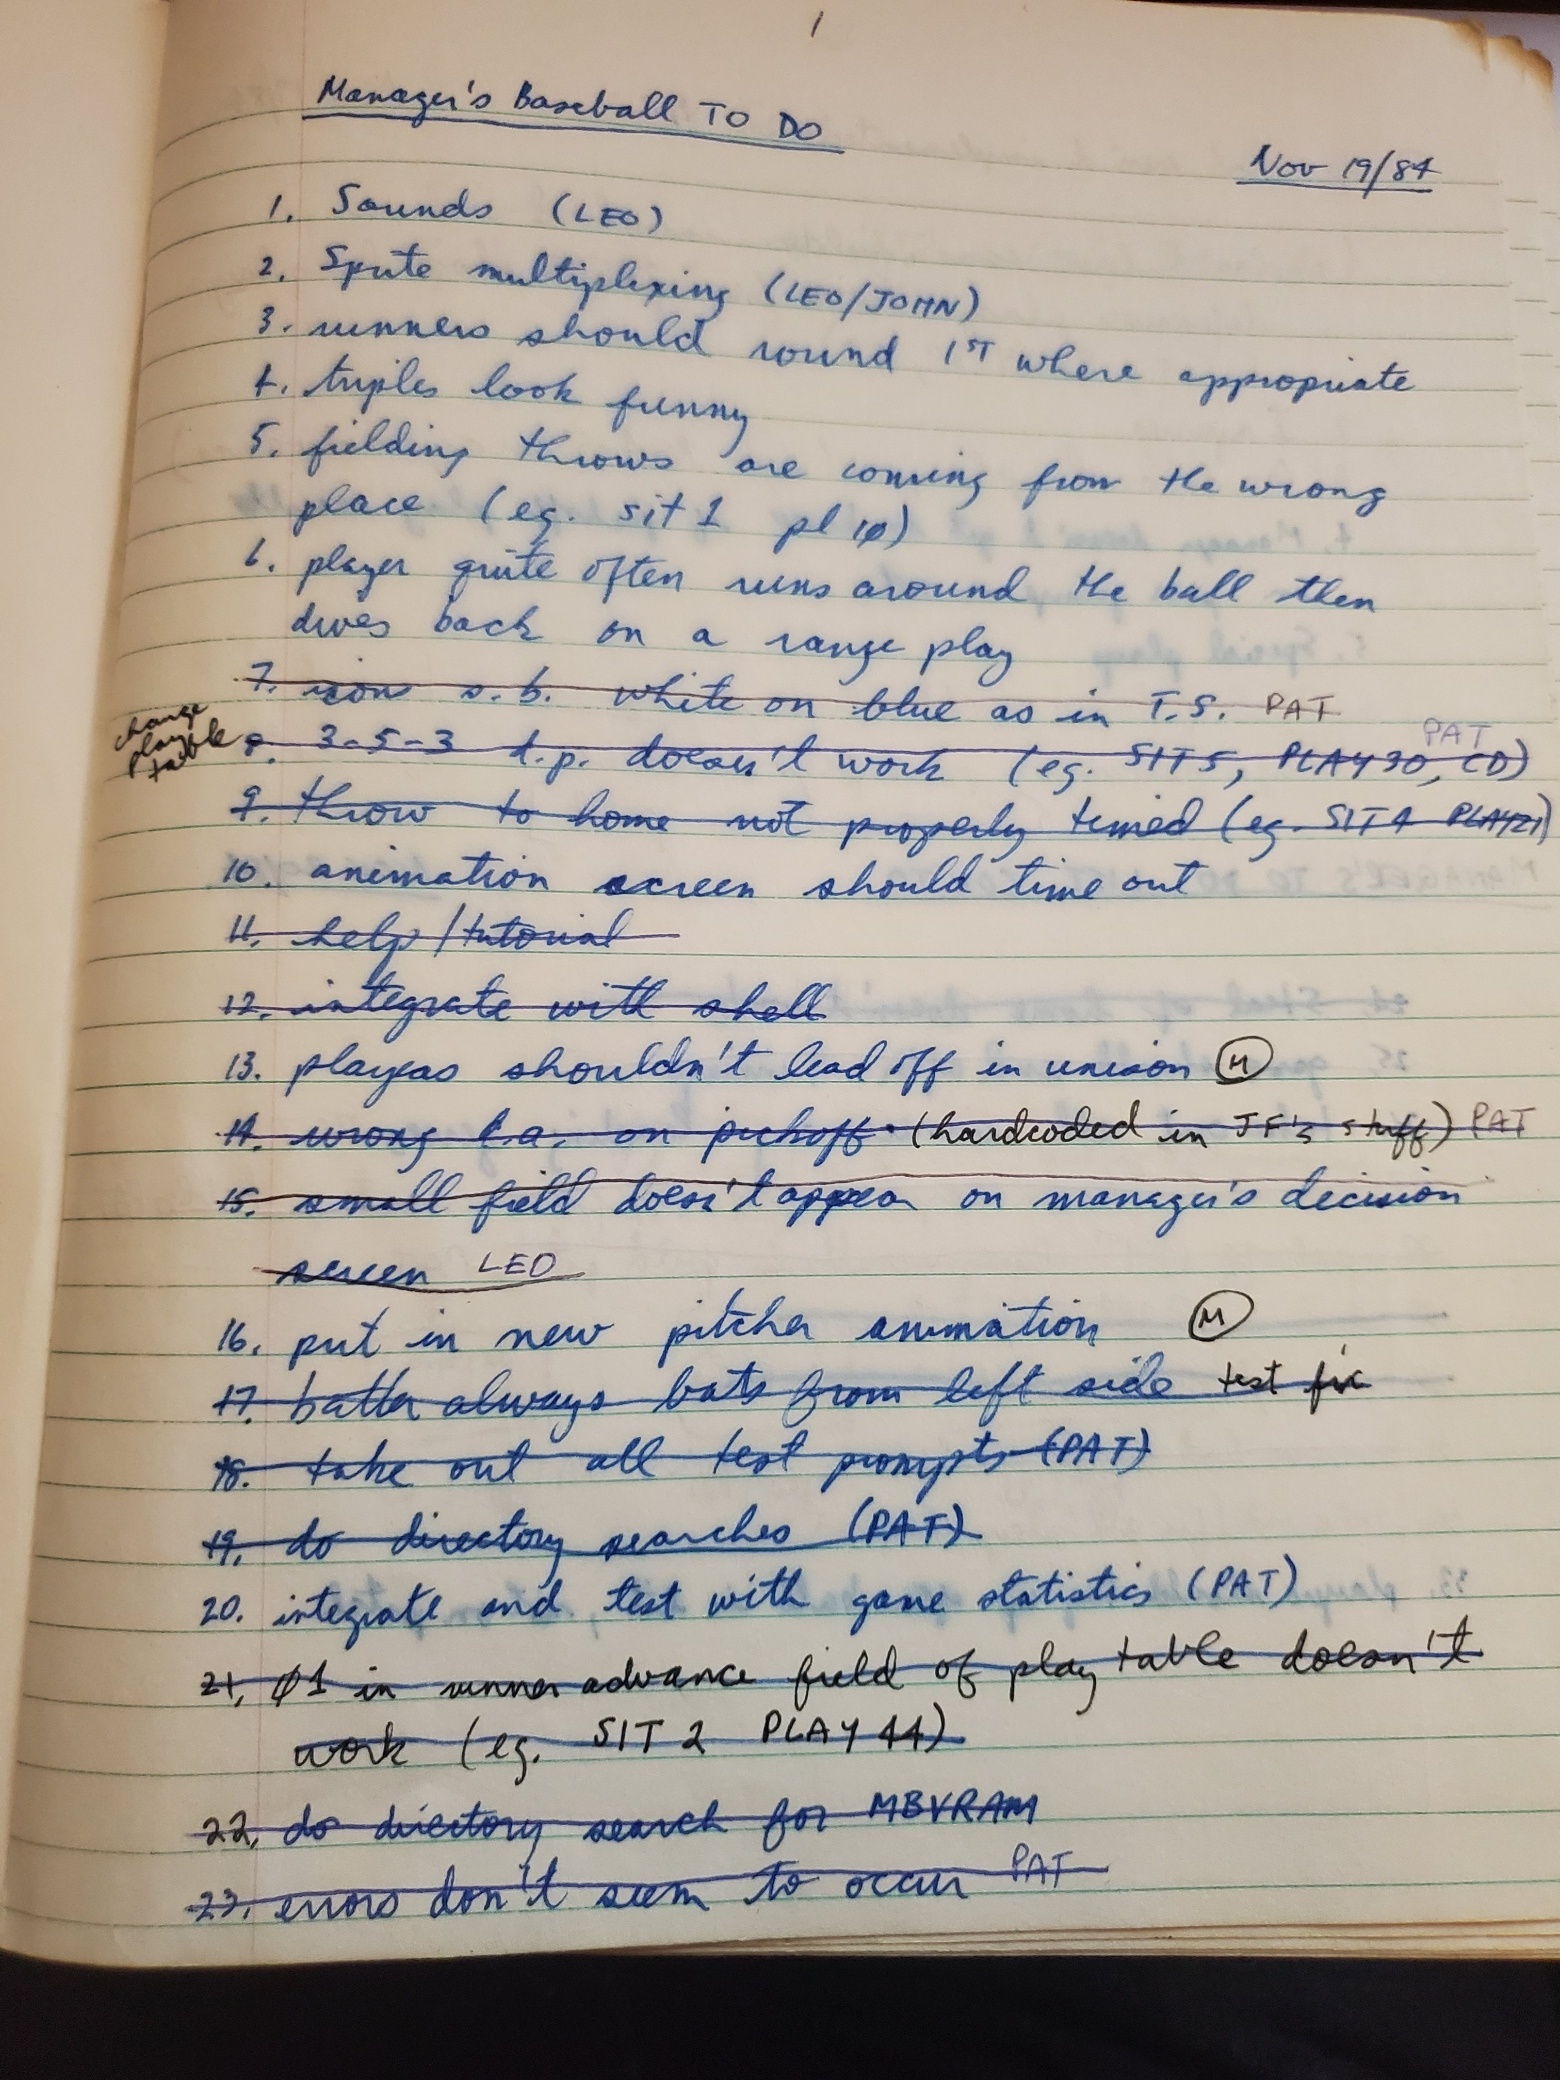 1
Manager's Baseball TO DO
Nov 19/84
1. Sounds (LEO)
2. Sprite multiplexing (LEO/JOHN)
3. runners should round 1ST where appropriate
4. triples look funny
5. fielding throws are coming from the wrong
place (eg. sit 1 pl 1Ø)
6. player quite often runs around the ball then
dives back on a range play
7. icons s.b. white on blue as in T.S. PAT
change
play
table
PAT
8. 3-5-3 d.p. doesn't work (eg. SIT 5, PLAY 30, CD)
9. throw to home not properly timed (eg. SIT 4 PLAY21)
10. animation screen should time out
11. help/tutorial
12. integrate with shell
13. players shouldn't lead off in unison M
14. wrong f.a. on pickoff (hardcoded in JF's stuff) PAT
15. small field doesn't appear on manager's decision
screen LEO
16. put in new pitcher animation M
17. batter always bats from left side test fix
18. take out all test prompts (PAT)
19. do directory searches (PAT)
20. integrate and test with game statistics (PAT)
21. Ø1 in runner advance field of play table doesn't
work (eg. SIT 2 PLAY 44)
22. do directory search for MBVRAM
23. errors don't seem to occur PAT